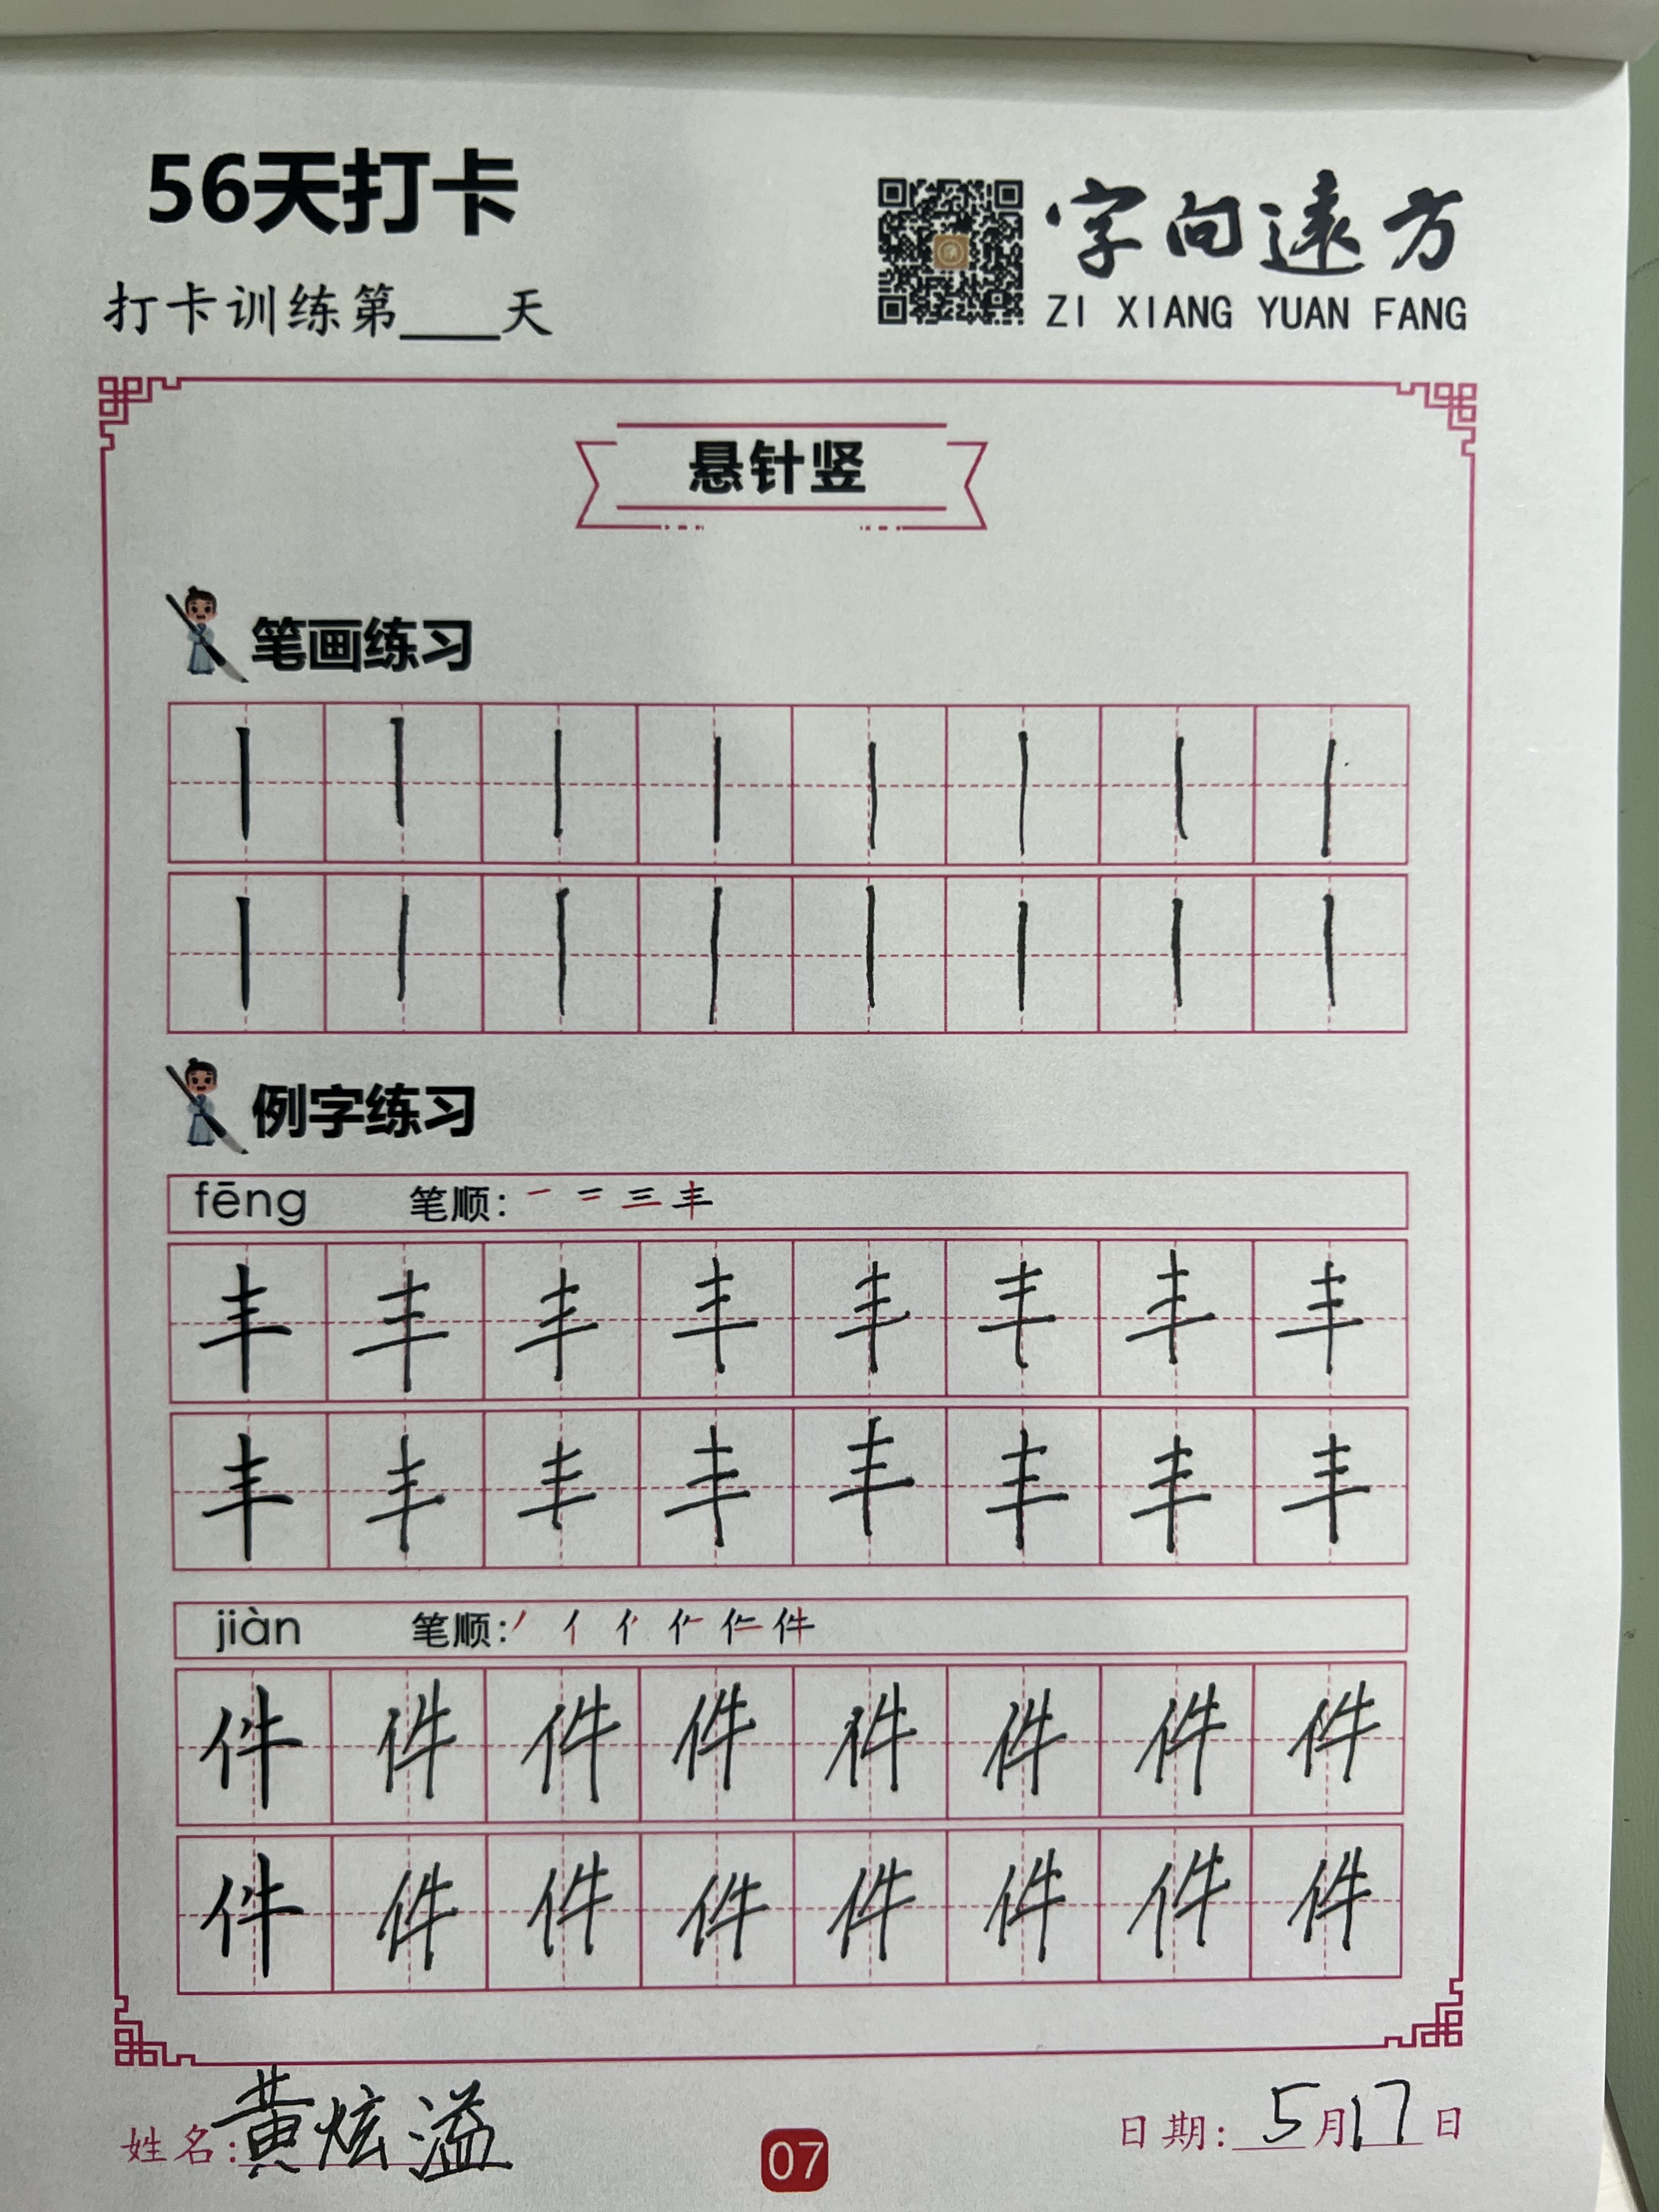 56天打卡
字向遠方
打卡训练第____天
ZI XIANG YUAN FANG
悬针竖
笔画练习
丨丨丨丨丨丨丨丨
丨丨丨丨丨丨丨丨
例字练习
fēng 笔顺: 一 二 三 丰
丰丰丰丰丰丰丰丰
丰丰丰丰丰丰丰丰
jiàn 笔顺: 丿 亻 件
件件件件件件件件
件件件件件件件件
姓名:黄炫溢
07
日期:5月17日